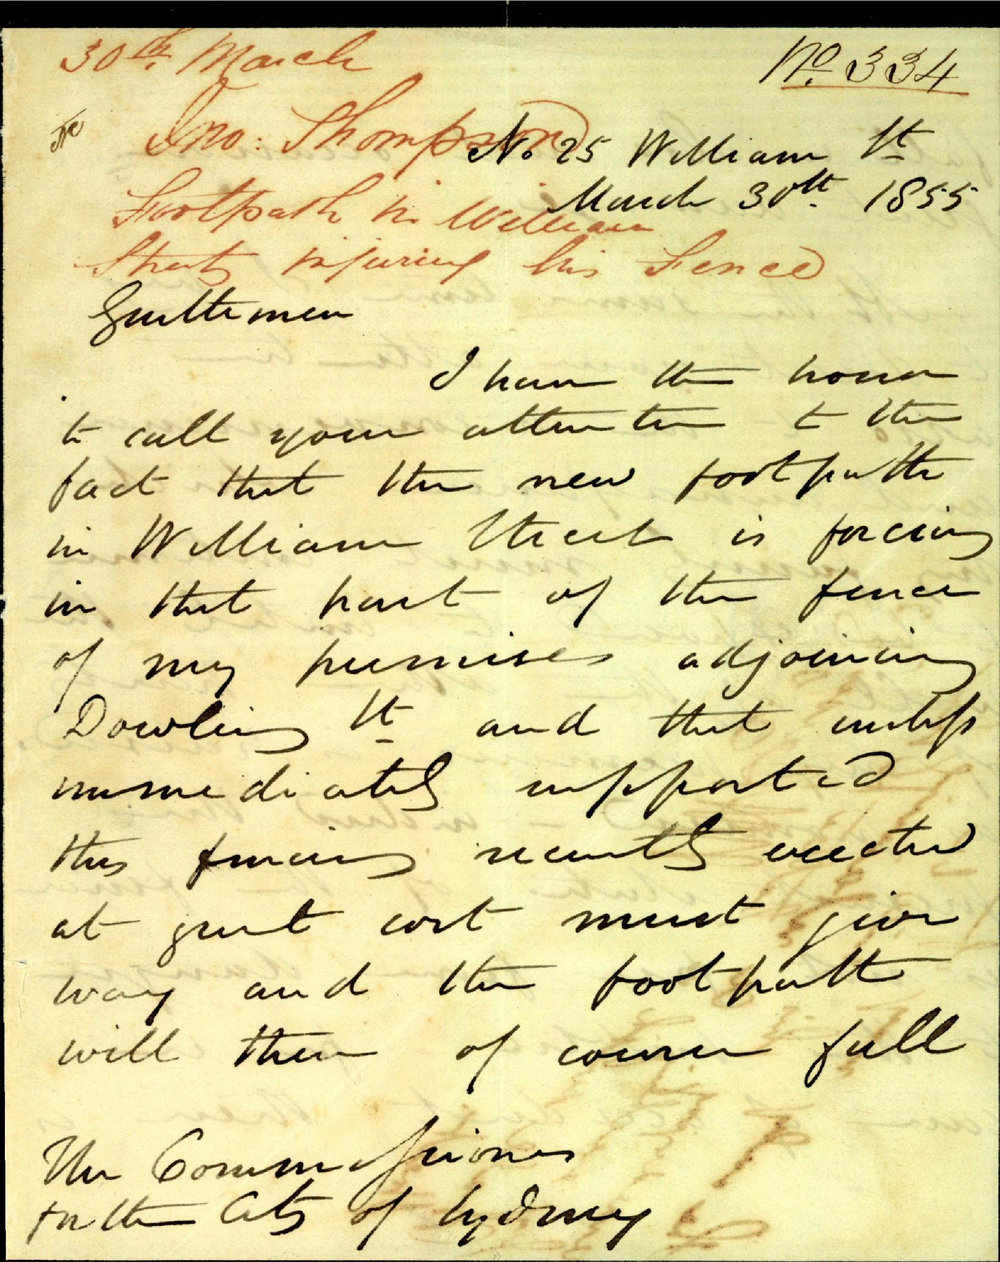 30th. March
No. 334
Jno: Thompson
No 25 William St
March 30th. 1855
Footpath in William
Street injuring his Fence
Gentlemen
I have the honor
to call your attention to the
fact that the new footpath
in William Street is forcing
in that part of the fence
of my premises adjoining
Dowling St and that unless
immediately supported
this fencing recently erected
at great cost must give
way and the footpath
will then of course fall
The Commissioners
for the City of Sydney